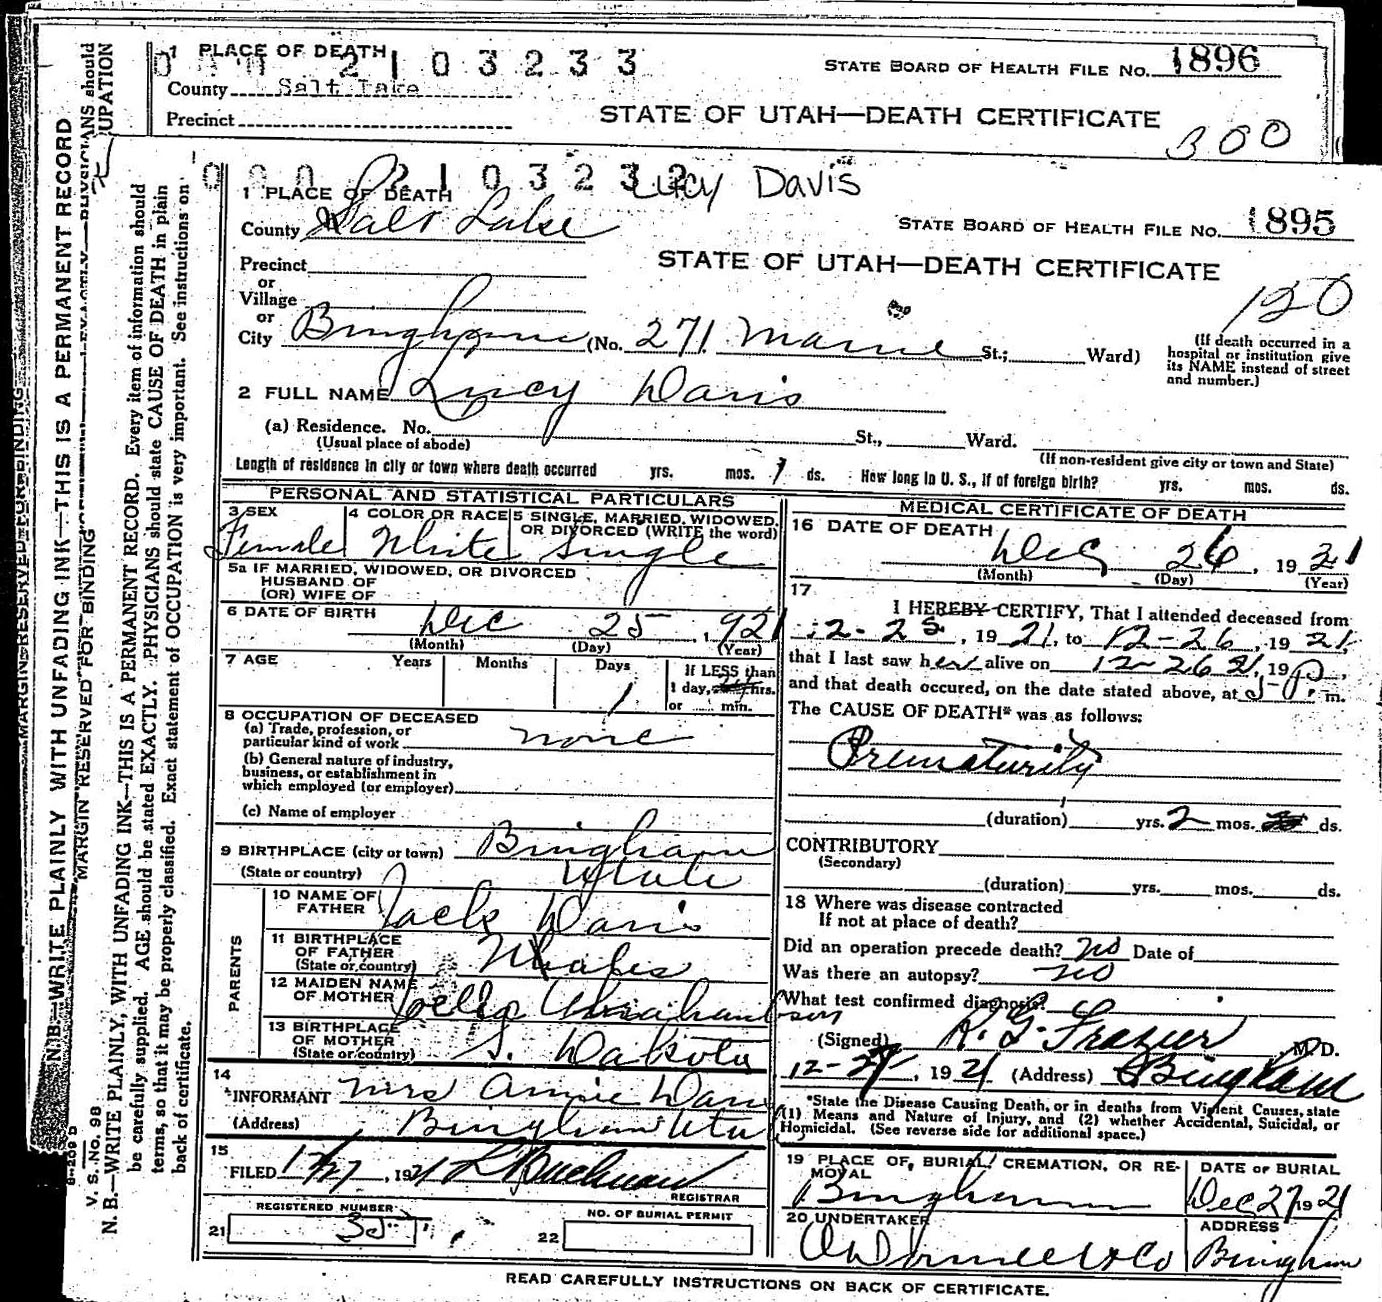 1 PLACE OF DEATH
0 0 0 2 1 0 3 2 3 3
STATE BOARD OF HEALTH FILE No. 1896
County Salt Lake
Precinct
STATE OF UTAH—DEATH CERTIFICATE
300
0 0 0 2 1 0 3 2 3 2
Lucy Davis
1 PLACE OF DEATH
County Salt Lake
STATE BOARD OF HEALTH FILE No. 1895
STATE OF UTAH—DEATH CERTIFICATE
120
Precinct
or
Village
or
City Bingham (No. 271 Main St.; Ward)
(If death occurred in a
hospital or institution give
its NAME instead of street
and number.)
2 FULL NAME Lucy Davis
(a) Residence. No. St., Ward.
(Usual place of abode)
(If non-resident give city or town and State)
Length of residence in city or town where death occurred yrs. mos. 1 ds. How long in U. S., if of foreign birth? yrs. mos. ds.
PERSONAL AND STATISTICAL PARTICULARS
3 SEX
Female
4 COLOR OR RACE
White
5 SINGLE, MARRIED, WIDOWED,
OR DIVORCED (WRITE the word)
Single
5a IF MARRIED, WIDOWED, OR DIVORCED
HUSBAND OF
(OR) WIFE OF
6 DATE OF BIRTH Dec 25, 1921
(Month) (Day) (Year)
7 AGE Years Months Days
1
If LESS than
1 day, hrs.
or min.
8 OCCUPATION OF DECEASED
(a) Trade, profession, or
particular kind of work none
(b) General nature of industry,
business, or establishment in
which employed (or employer)
(c) Name of employer
9 BIRTHPLACE (city or town) Bingham
(State or country) Utah
PARENTS
10 NAME OF
FATHER Jack Davis
11 BIRTHPLACE
OF FATHER
(State or country) Whales
12 MAIDEN NAME
OF MOTHER
13 BIRTHPLACE
OF MOTHER
(State or country) S. Dakota
14
INFORMANT Mrs Annie Davis
(Address) Bingham Utah
15
FILED 12/27, 1921 L Buchman
REGISTRAR
REGISTERED NUMBER
21 35
NO. OF BURIAL PERMIT
22
MEDICAL CERTIFICATE OF DEATH
16 DATE OF DEATH
Dec 26, 1921
(Month) (Day) (Year)
17
I HEREBY CERTIFY, That I attended deceased from
12-25, 1921, to 12-26, 1921,
that I last saw her alive on 12-26 21, 19
and that death occured, on the date stated above, at 5 P. m.
The CAUSE OF DEATH* was as follows:
Prematurity
(duration) yrs. 2 mos. ds.
CONTRIBUTORY
(Secondary)
(duration) yrs. mos. ds.
18 Where was disease contracted
If not at place of death?
Did an operation precede death? no Date of
Was there an autopsy? no
What test confirmed diagnosis?
(Signed) R. G. Frazier M. D.
12-27, 1921 (Address) Bingham
*State the Disease Causing Death, or in deaths from Violent Causes, state
(1) Means and Nature of Injury, and (2) whether Accidental, Suicidal, or
Homicidal. (See reverse side for additional space.)
19 PLACE OF BURIAL, CREMATION, OR RE-
MOVAL
Bingham
DATE OF BURIAL
Dec 27 1921
20 UNDERTAKER
O'Donnell & Co
ADDRESS
Bingham
READ CAREFULLY INSTRUCTIONS ON BACK OF CERTIFICATE.
MARGIN RESERVED FOR BINDING
N. B.—WRITE PLAINLY WITH UNFADING INK—THIS IS A PERMANENT RECORD
MARGIN RESERVED FOR BINDING
V. S. No. 98
N. B.—WRITE PLAINLY, WITH UNFADING INK—THIS IS A PERMANENT RECORD. Every item of information should
be carefully supplied. AGE should be stated EXACTLY. PHYSICIANS should state CAUSE OF DEATH in plain
terms, so that it may be properly classified. Exact statement of OCCUPATION is very important. See instructions on
back of certificate.